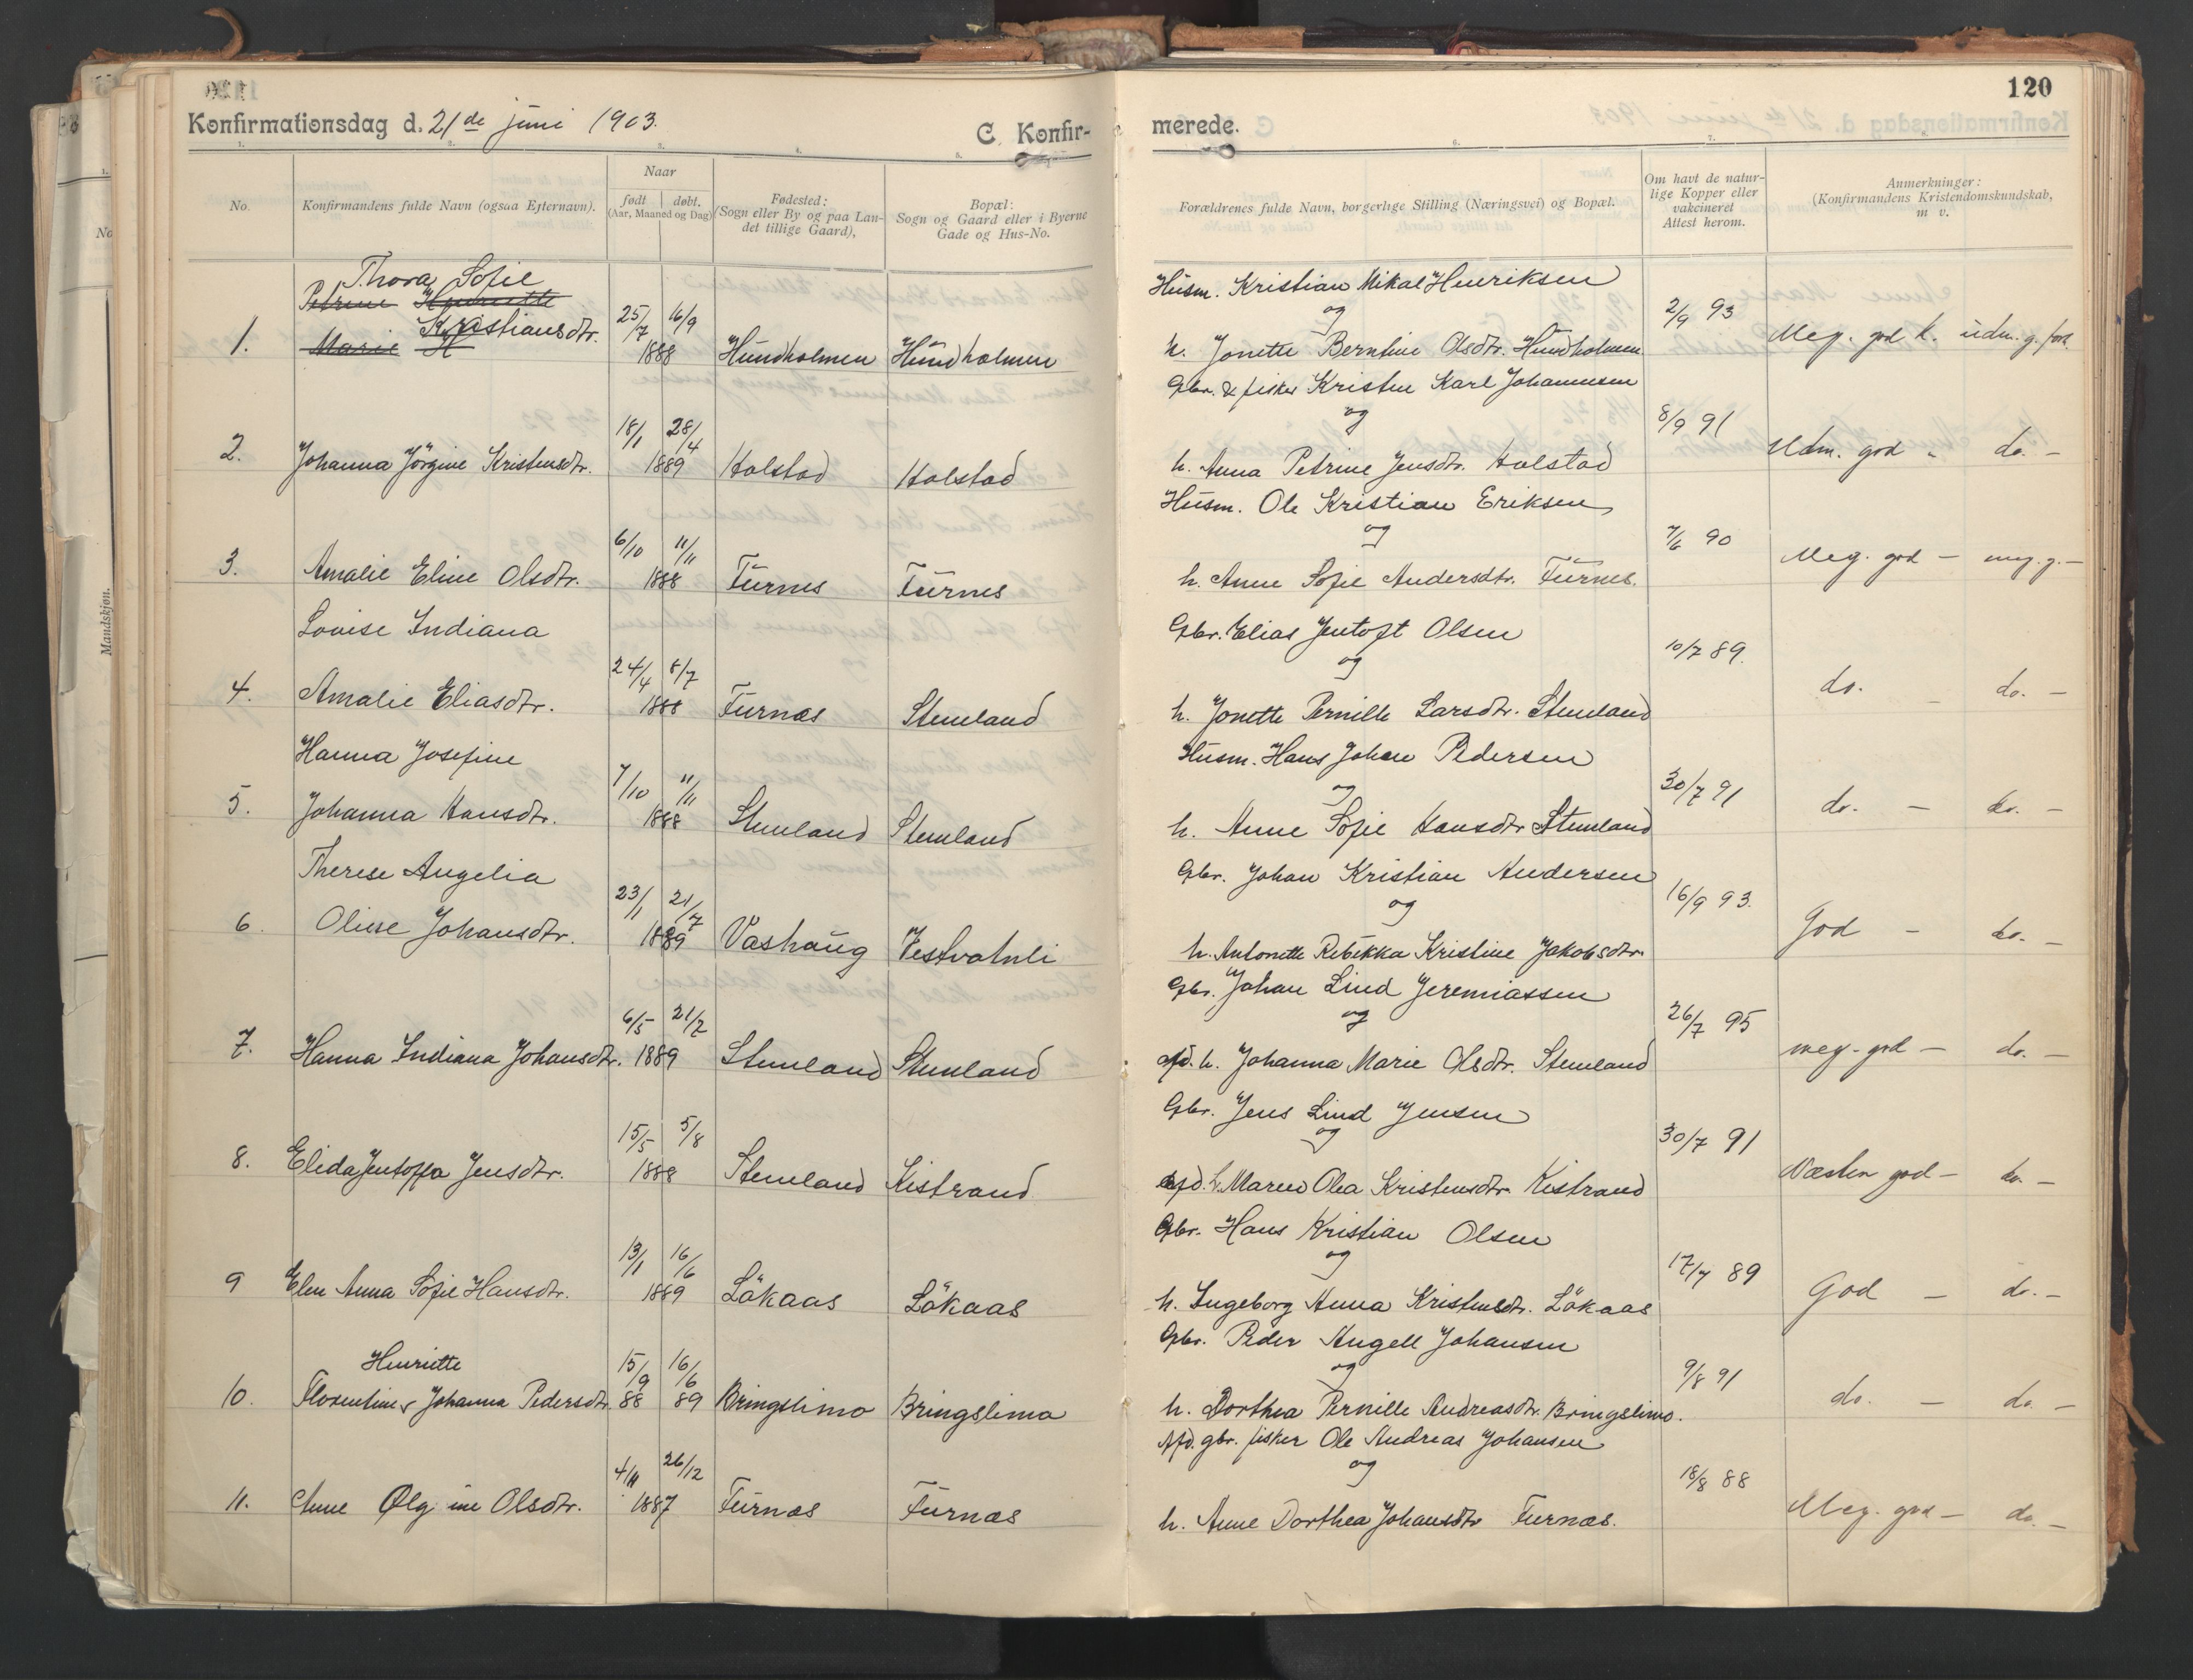 120
Konfirmationsdag d. 21de juni 1903.
C. Konfir-
merede.
1. 2. 3. 4. 5. 6. 7.
No.
Konfirmandens fulde Navn (ogsaa Efternavn).
Naar
født
døbt.
(Aar, Maaned og Dag)
Fødested:
(Sogn eller By og paa Lan-
det tillige Gaard),
Bopæl:
Sogn og Gaard eller i Byerne
Gade og Hus-No.
Forældrenes fulde Navn, borgerlige Stilling (Næringsvei) og Bopæl.
Om havt de natur-
lige Kopper eller
vakcineret
Attest herom.
Anmerkninger:
(Konfirmandens Kristendomskundskab,
m v.
Mandskjøn.
Thora Sofie
Petrine Henriette
Kristiansdtr.
1. Marie H
25/7 16/9
1888 Hundholmen Hundholmen
Husm. Kristian Mikal Henriksen
og
h. Jonette Berntine Olsdtr. Hundholmen
2/9 93
Meg. god k. udm. g. fori.
2. Johanna Jörgine Kristensdtr.
18/1 28/4
1889 Halstad Halstad
Gbr. & fisker Kristen Karl Johannesen
og
h. Anna Petrine Jensdtr. Halstad
8/9 91
Udm. god - do. -
3. Amalie Eline Olsdtr.
6/10 11/11
1888 Furnes Furnes
Husm. Ole Kristian Eriksen
og
h. Anne Sofie Andersdtr. Furnes.
7/6 90
Meg. god - meg. g. -
Lovise Indiana
4. Amalie Eliasdtr.
24/4 8/7
1888 Furnæs Stemland
Gbr. Elias Jentoft Olsen
og
h. Jonette Pernille Larsdtr. Stemland
10/7 89.
do. - do. -
Hanna Josefine
5. Johanna Hansdtr.
7/10 11/11
1888 Stemland Stemland
Husm. Hans Johan Pedersen
og
h. Anne Sofie Hansdtr Stemland
30/7 91
do. - do. -
Therese Angelia
6 Oline Johansdtr.
23/1 21/7
1889 Vashaug Vestvatnli
Gbr. Johan Kristian Andersen
og
h. Antonette Rebekka Kristine Jakobsdtr.
16/9 93.
God - do. -
7. Hanna Indiana Johansdtr.
6/5 21/7
1889 Stemland Stemland
Gbr. Johan Lind Jeremiassen
og
afd. h. Johanna Marie Olsdtr. Stemland
26/7 95
meg. god - do. -
8. Elida Jentoffa Jensdtr.
15/5 5/8
1888 Stemland Kistrand
Gbr. Jens Lind Jensen
og
afd. h. Maren Olea Kristensdtr. Kistrand
30/7 91
Næsten god - do. -
9 Elen Anna Sofie Hansdtr.
13/1 16/6
1889 Lökaas Lökaas
Gbr. Hans Kristian Olsen
og
h. Ingeborg Anna Kristensdtr. Lökaas
17/7 89
God - do. -
Henriette
10. Florentine Johanna Pedersdtr.
15/9 16/6
88 89 Bringslimo Bringslimo
Gbr. Peder Angell Johansen
og
h. Dorthea Pernille Andreasdtr. Bringslimo.
9/8 91
do. - do. -
11. Anne Olgine Olsdtr.
4/11 26/12
1887 Furnæs Furnæs
Afd. gbr. fisker Ole Andreas Johansen
og
h. Anne Dorthea Johansdtr Furnæs.
18/8 88
Meg. god - do. -